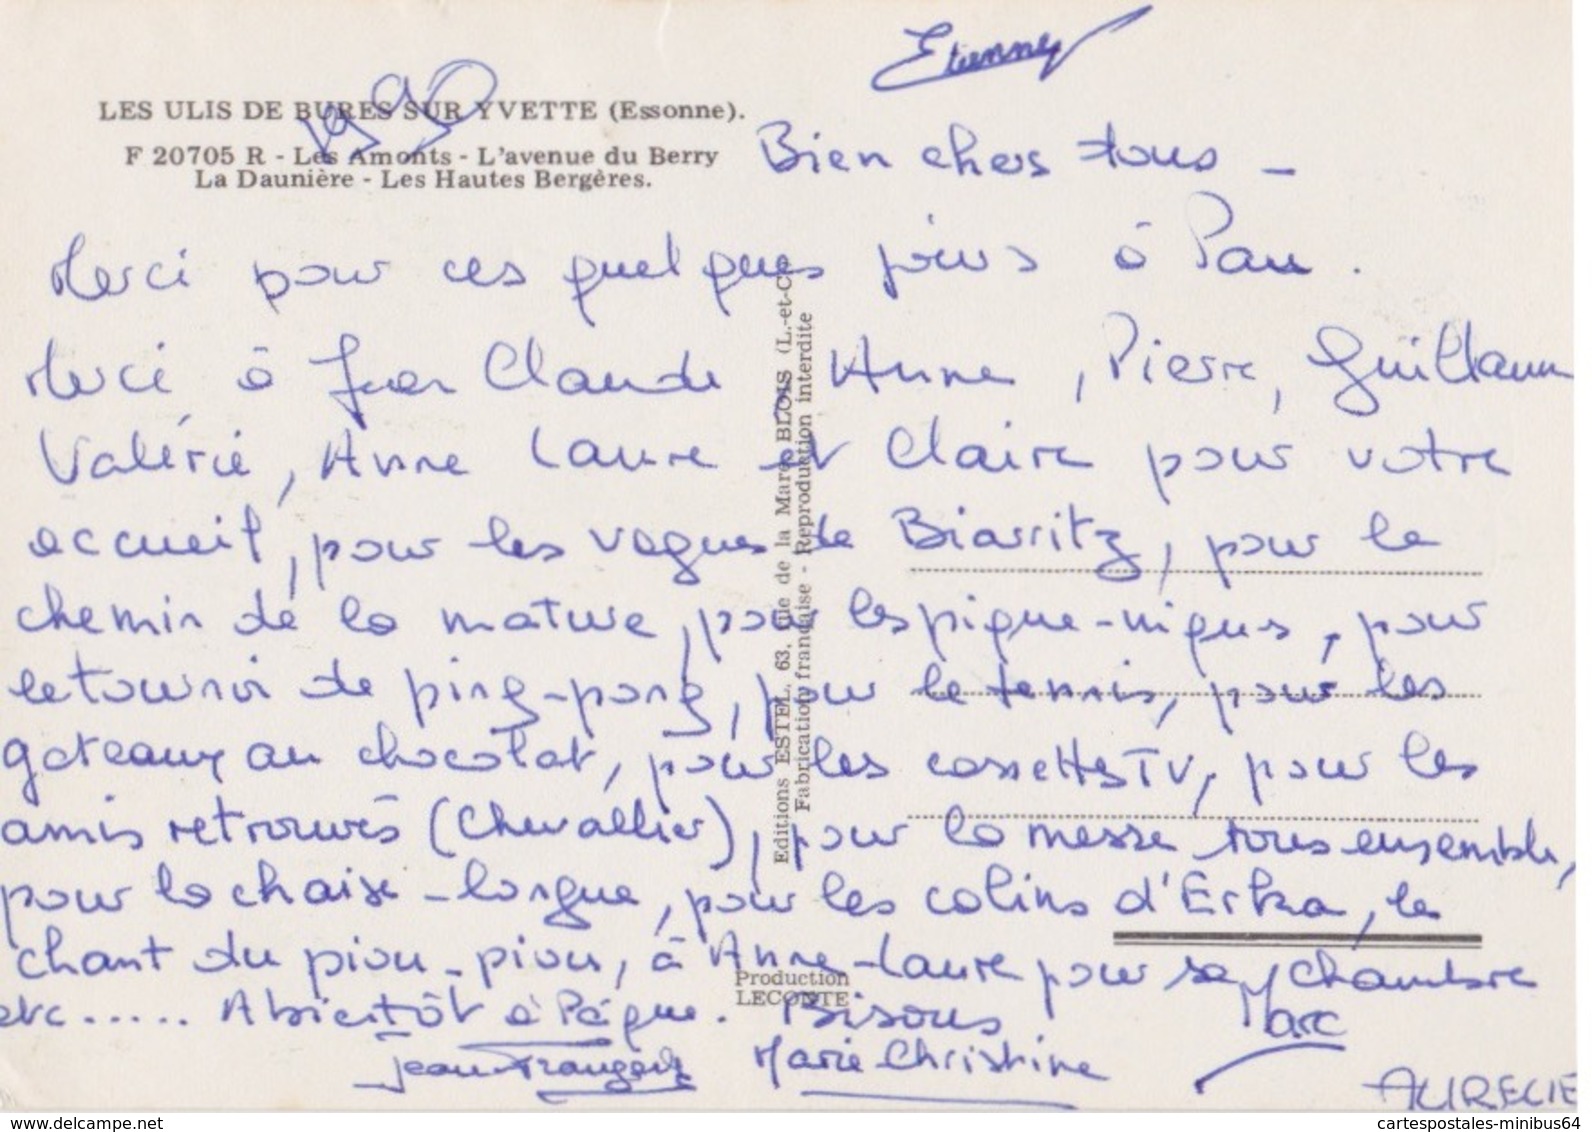 Etienne
1990
LES ULIS DE BURES SUR YVETTE (Essonne).
F 20705 R - Les Amonts - L'avenue du Berry
La Daunière - Les Hautes Bergères.
Bien chers tous -
Merci pour ces quelques jours à Pau.
Merci à Jean Claude, Anne, Pierre, Guillaum
Valérie, Anne Laure et Claire pour votre
accueil, pour les vagues de Biarritz, pour le
chemin de la mature, pour les pique-niques, pour
le tournoi de ping-pong, pour le tennis, pour les
gateaux au chocolat, pour les cassettes TV, pour les
amis retrouvés (Chevallier), pour la messe tous ensemble,
pour la chaise-longue, pour les colins d'Erka, le
chant du piou-piou, à Anne-Laure pour sa chambre
etc..... A bientôt à Pâque. Bisous Marc
Jean François Marie Christine
AURELIE
Editions ESTEL, 63, rue de la Mare, BLOIS (L.-et-C
Fabrication française - Reproduction interdite
Production
LECONTE
www.delcampe.net
cartespostales-minibus64